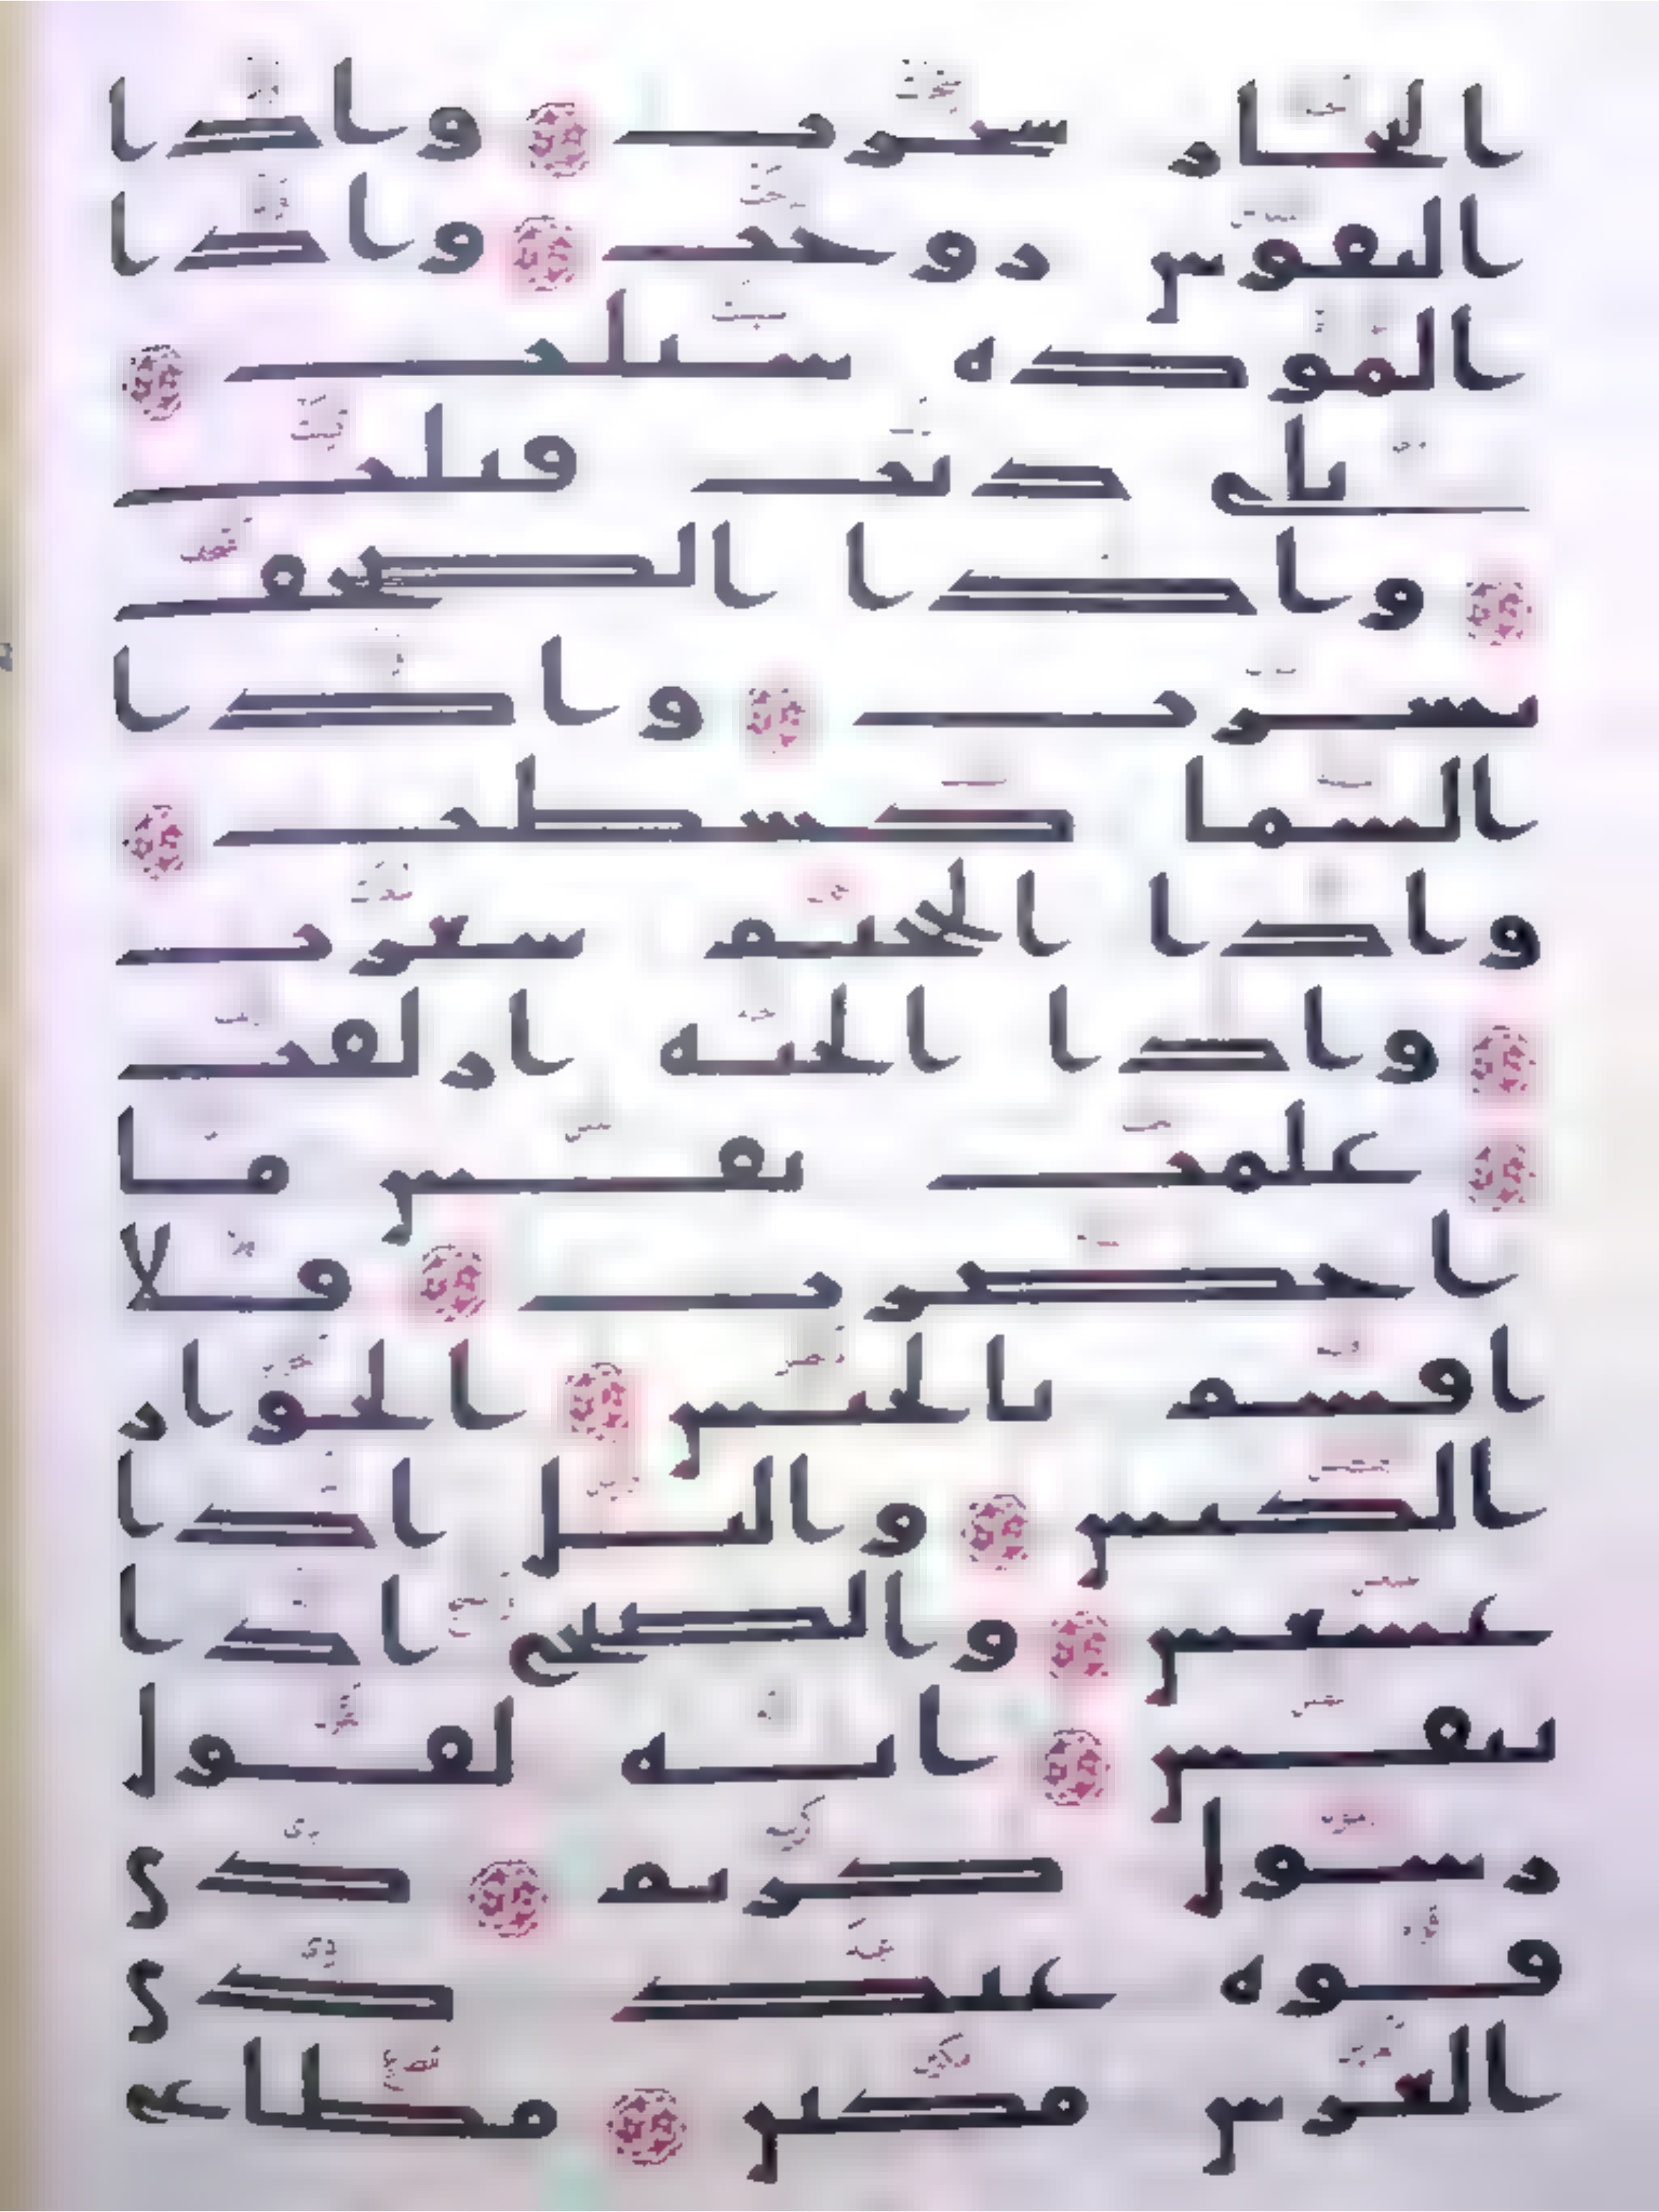 البحار سجرت واذا
النفوس زوجت واذا
الموده سىلت
باي ذنب قتلت
واذا الصحف
نشرت واذا
السما كشطت
واذا الجحيم سعرت
واذا الجنه ازلفت
علمت نفس ما
احضرت فلا
اقسم بالخنس الجوار
الكنس واليل اذا
عسعس والصبح اذا
تنفس انه لقول
رسول كريم ذي
قوه عند ذي
العرش مكين مطاع